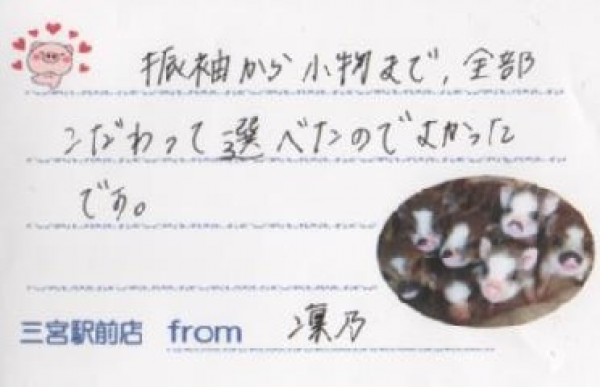 振袖から小物まで、全部
こだわって選べたのでよかった
です。
三宮駅前店 from 凜乃